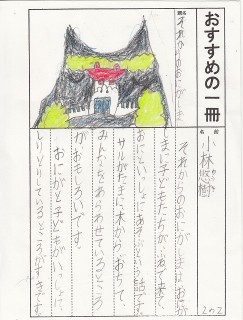 おすすめの一冊
題名
それからのおにがしま
名前
小林悠樹
2の2
それからのおにがしまは、おにが
しまに子どもたちが、ふねで来て
おにといっしょにあそぶという話です。
サルがたまに、木からおちて、
みんなでわらわせているところ
がおもしろいです。
おにが子どもがいっしょに、
いりとりしているところがすきです。